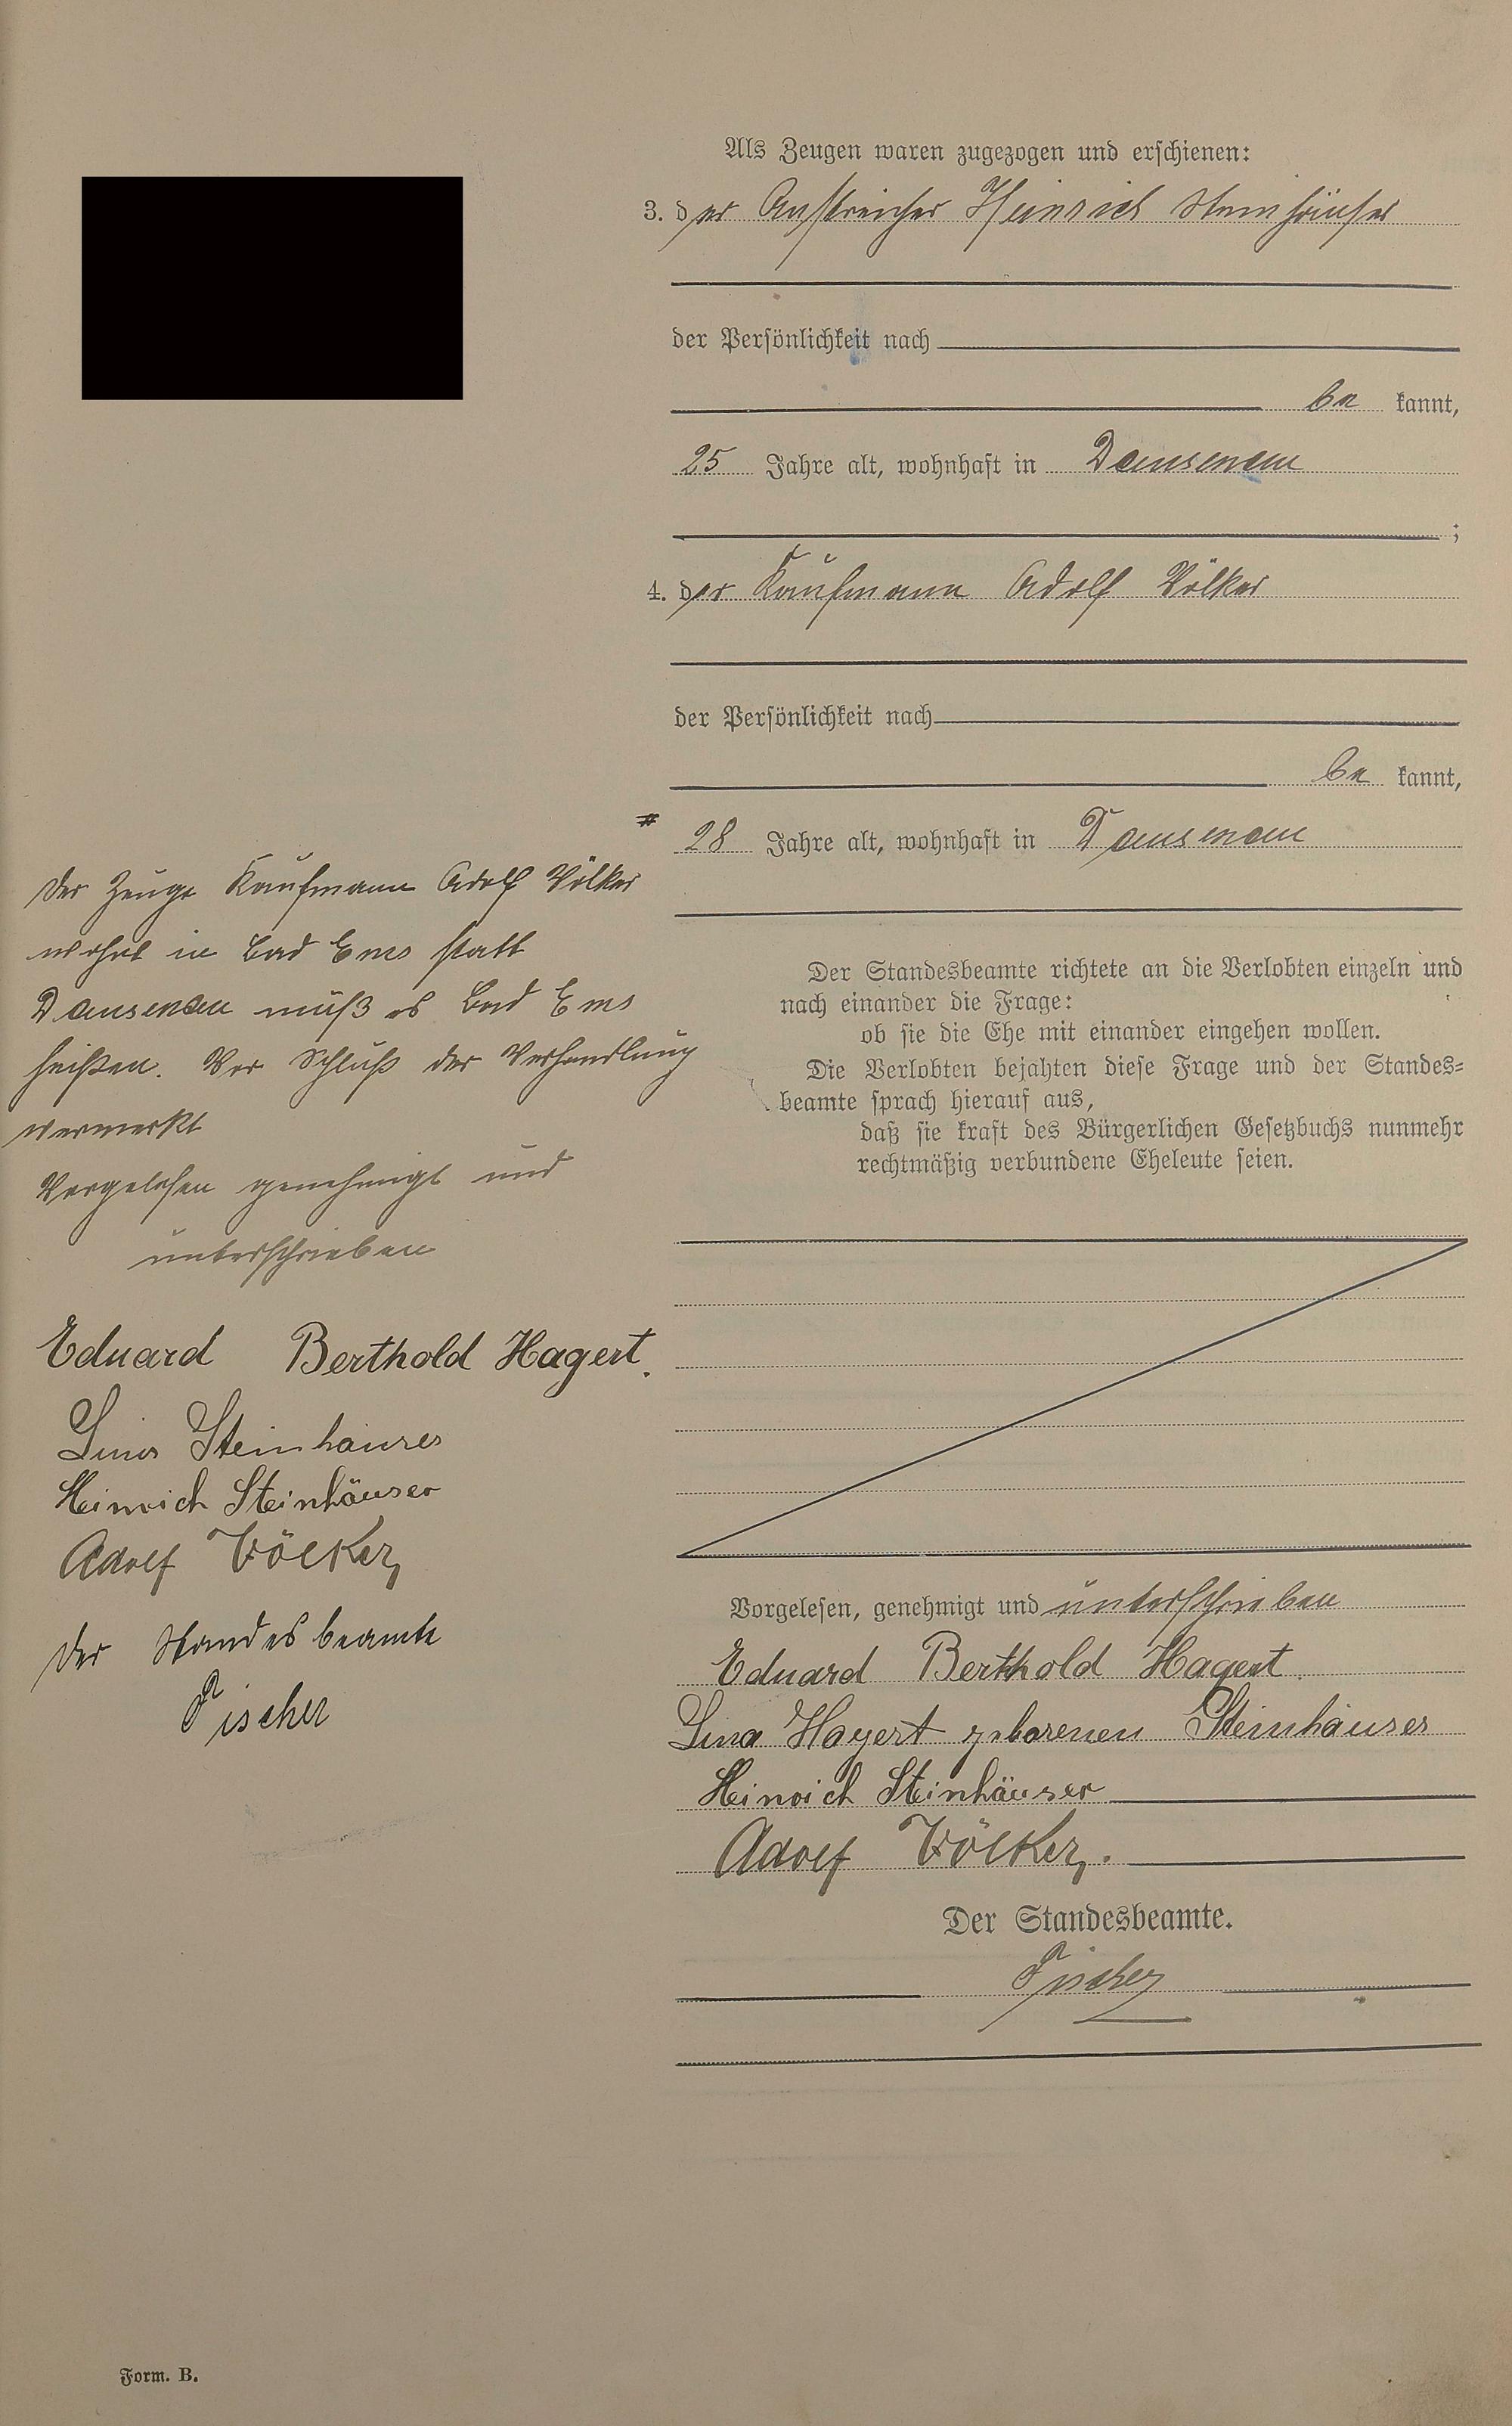 Als Zeugen waren zugezogen und erschienen:
3. der Anstreicher Heinrich Steinhäuser
der Persönlichkeit nach
be kannt,
25 Jahre alt, wohnhaft in Dausenau
;
4. der Kaufmann Adolf Völker
der Persönlichkeit nach
be kannt,
# 28 Jahre alt, wohnhaft in Dausenau
Der Standesbeamte richtete an die Verlobten einzeln und
nach einander die Frage:
ob sie die Ehe mit einander eingehen wollen.
Die Verlobten bejahten diese Frage und der Standes-
beamte sprach hierauf aus,
daß sie kraft des Bürgerlichen Gesetzbuchs nunmehr
rechtmäßig verbundene Eheleute seien.
Vorgelesen, genehmigt und unterschrieben
Eduard Berthold Hagert.
Lina Hagert geborenen Steinhäuser
Heinrich Steinhäuser
Adolf Völker.
Der Standesbeamte.
Fischer
Der Zeuge Kaufmann Adolf Völker
wohnt in Bad Ems statt
Dausenau muß es Bad Ems
heißen. Vor Schluß der Verhandlung
vermerkt
Vorgelesen genehmigt und
unterschrieben
Eduard Berthold Hagert.
Lina Steinhäuser
Heinrich Steinhäuser
Adolf Völker
Der Standesbeamte
Fischer
Form. B.